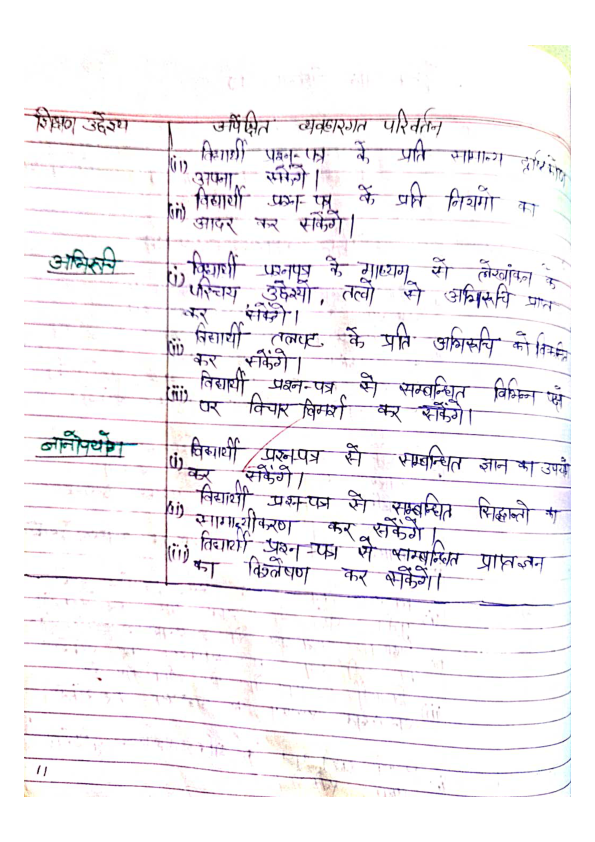 शिक्षण उद्देश्य अपेक्षित व्यवहारगत परिवर्तन
(ii) विद्यार्थी प्रश्न-पत्र के प्रति सामान्य
अपना सकेंगे।
(iii) विद्यार्थी प्रश्न-पत्र के प्रति नियमों का
आदर कर सकेंगे।
अभिरूचि
(i) विद्यार्थी प्रश्नपत्र के माध्यम से लेखांकन के
परिचय उद्देश्यों, तत्वों से अभिरूचि प्राप्त
कर सकेंगे।
(ii) विद्यार्थी तलपट के प्रति अभिरूचि को
कर सकेंगे।
(iii) विद्यार्थी प्रश्न-पत्र से सम्बन्धित विभिन्न
पर विचार विमर्श कर सकेंगे।
ज्ञानोपयोग
(i) विद्यार्थी प्रश्न-पत्र से सम्बन्धित ज्ञान का
कर सकेंगे।
(ii) विद्यार्थी प्रश्न-पत्र से सम्बन्धित सिद्धान्तो का
सामान्यीकरण कर सकेंगे।
(iii) विद्यार्थी प्रश्न-पत्र से सम्बन्धित प्राप्त ज्ञान
का विश्लेषण कर सकेंगे।
11